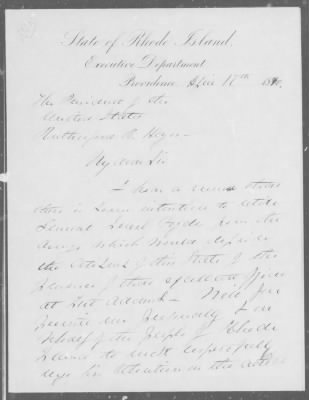 State of Rhode Island,
Executive Department
Providence, 17th 1880.
The President of the
United States
Rutherford B. Hayes
My dear Sir
I hear a rumor that
there is some intention to retire
General from the
army which would deprive
the citizens of this State of the
pleasure of that excellent officer
at Fort Adams — Will you
permit me personally & on
behalf of the people of Rhode
Island to most respectfully
urge his retention on the active